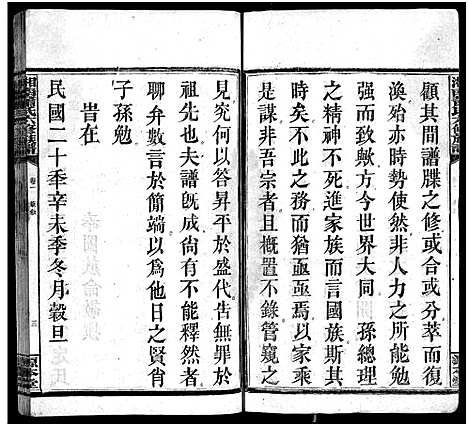 顧其間譜牒之修或合或分萃而復
渙殆亦時勢使然非人力之能勉
強而致歟方今世界大同 孫總理
之精神不死進家族而言國族斯其
時矣乃於此而猶亟亟焉規規焉以
為是非吾宗者且概置不錄管窺之
見究何以答昇平於盛代告無罪於
祖先也夫譜旣成尙有不能釋然者
聊弁數言於簡端以爲他日之賢肖
子孫勉
旹在
民國二十季辛未季冬月穀旦
卷一
三